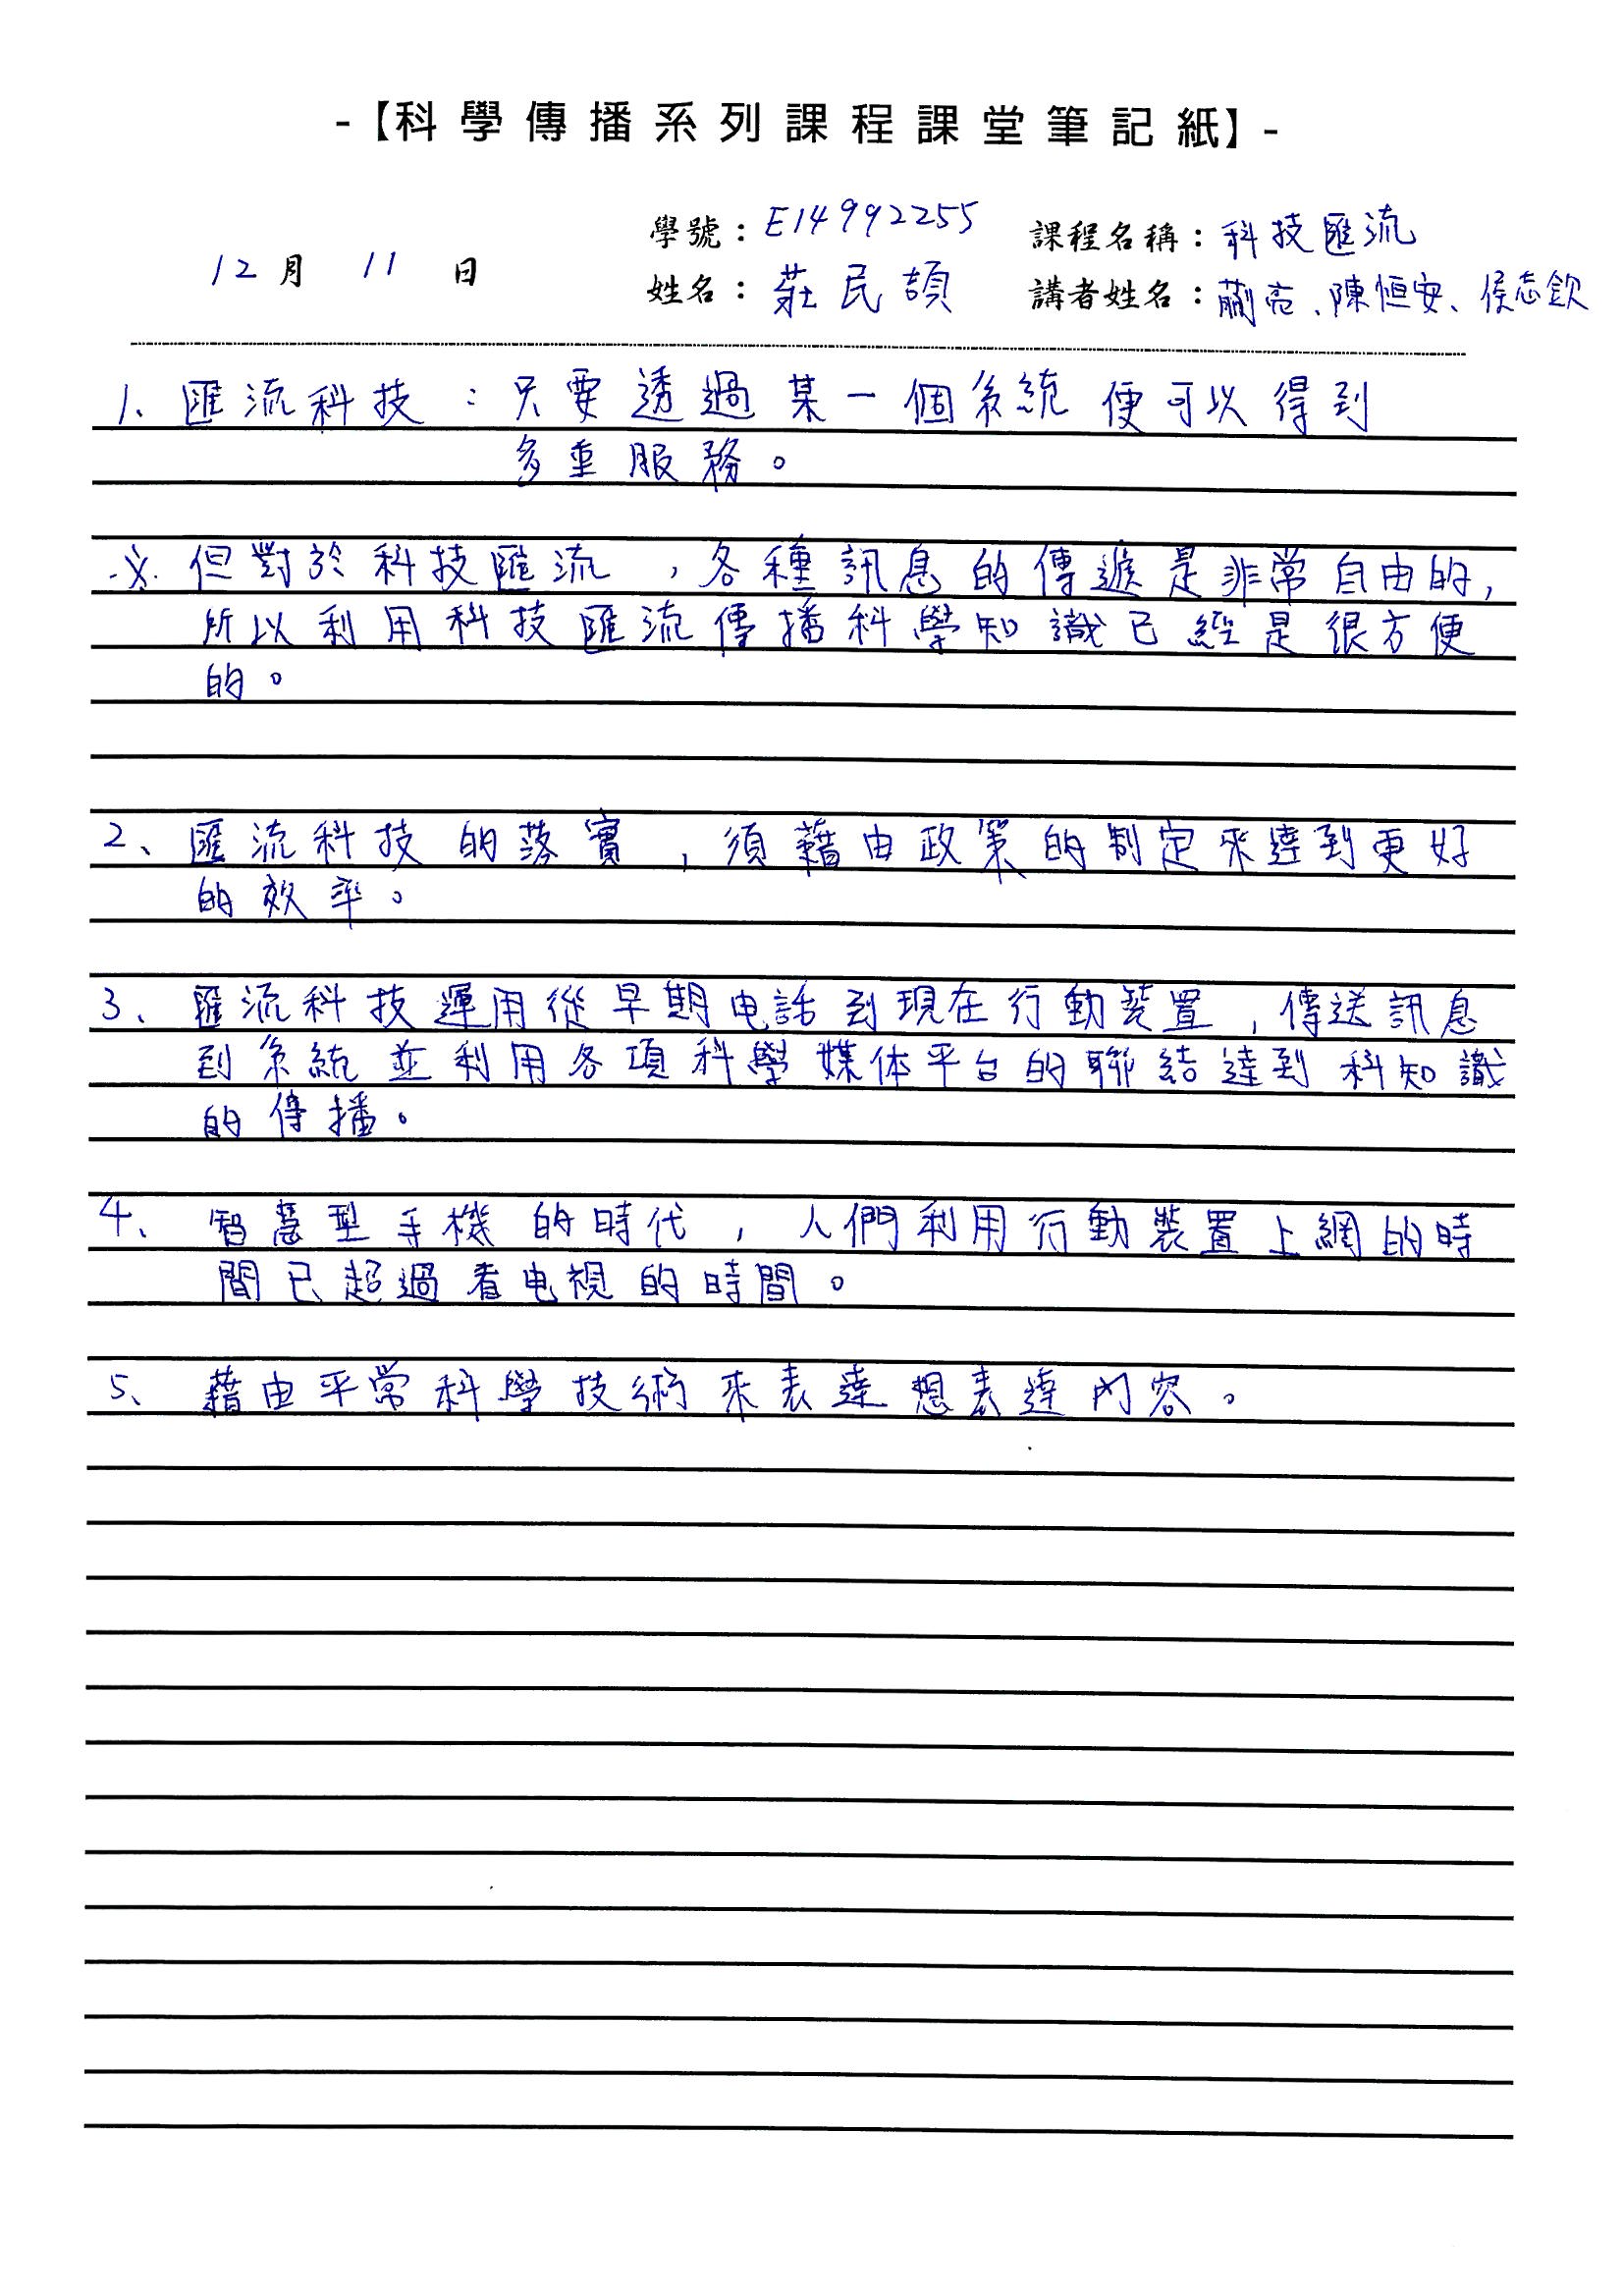 -【科學傳播系列課程課堂筆記紙】-
學號：E14992255 課程名稱：科技匯流
12月 11 日 姓名：莊民頡 講者姓名：蕭亮、陳恒安、侯志欽
1、匯流科技：只要透過某一個系統便可以得到
多重服務。
※ 但對於科技匯流，各種訊息的傳遞是非常自由的，
所以利用科技匯流傳播科學知識已經是很方便
的。
2、匯流科技的落實，須藉由政策的制定來達到更好
的效率。
3、匯流科技運用從早期电話到現在行動裝置，傳送訊息
到系統並利用各項科學媒体平台的聯結達到科知識
的傳播。
4、智慧型手機的時代，人們利用行動裝置上網的時
間已超過看电視的時間。
5、藉由平常科學技術來表達想表達內容。